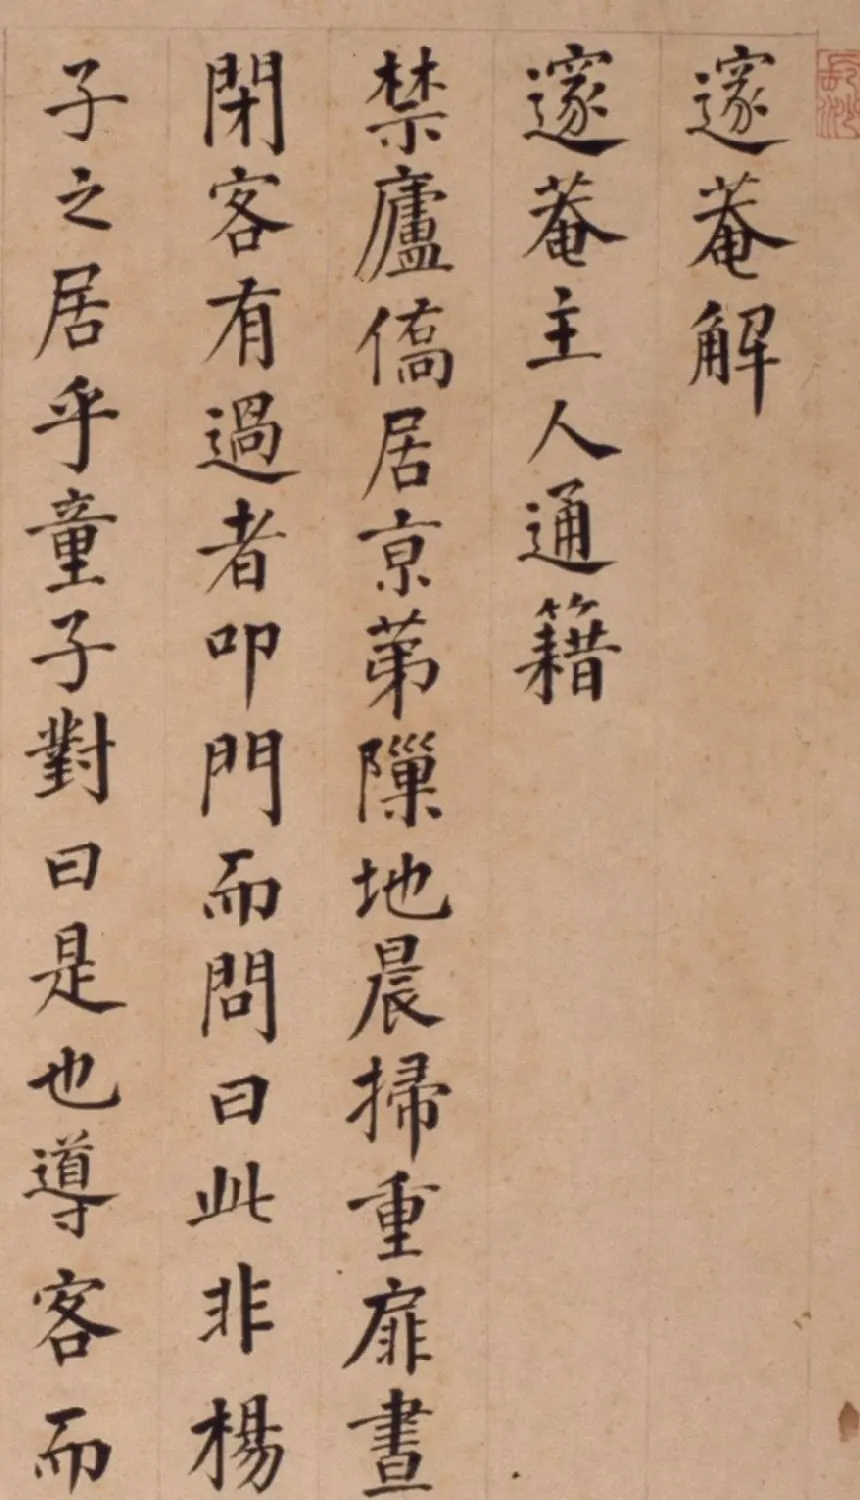 邃菴解
邃菴主人通籍
禁廬僑居京第隟地晨掃重扉晝
閉客有過者叩門而問曰此非楊
子之居乎童子對曰是也導客而